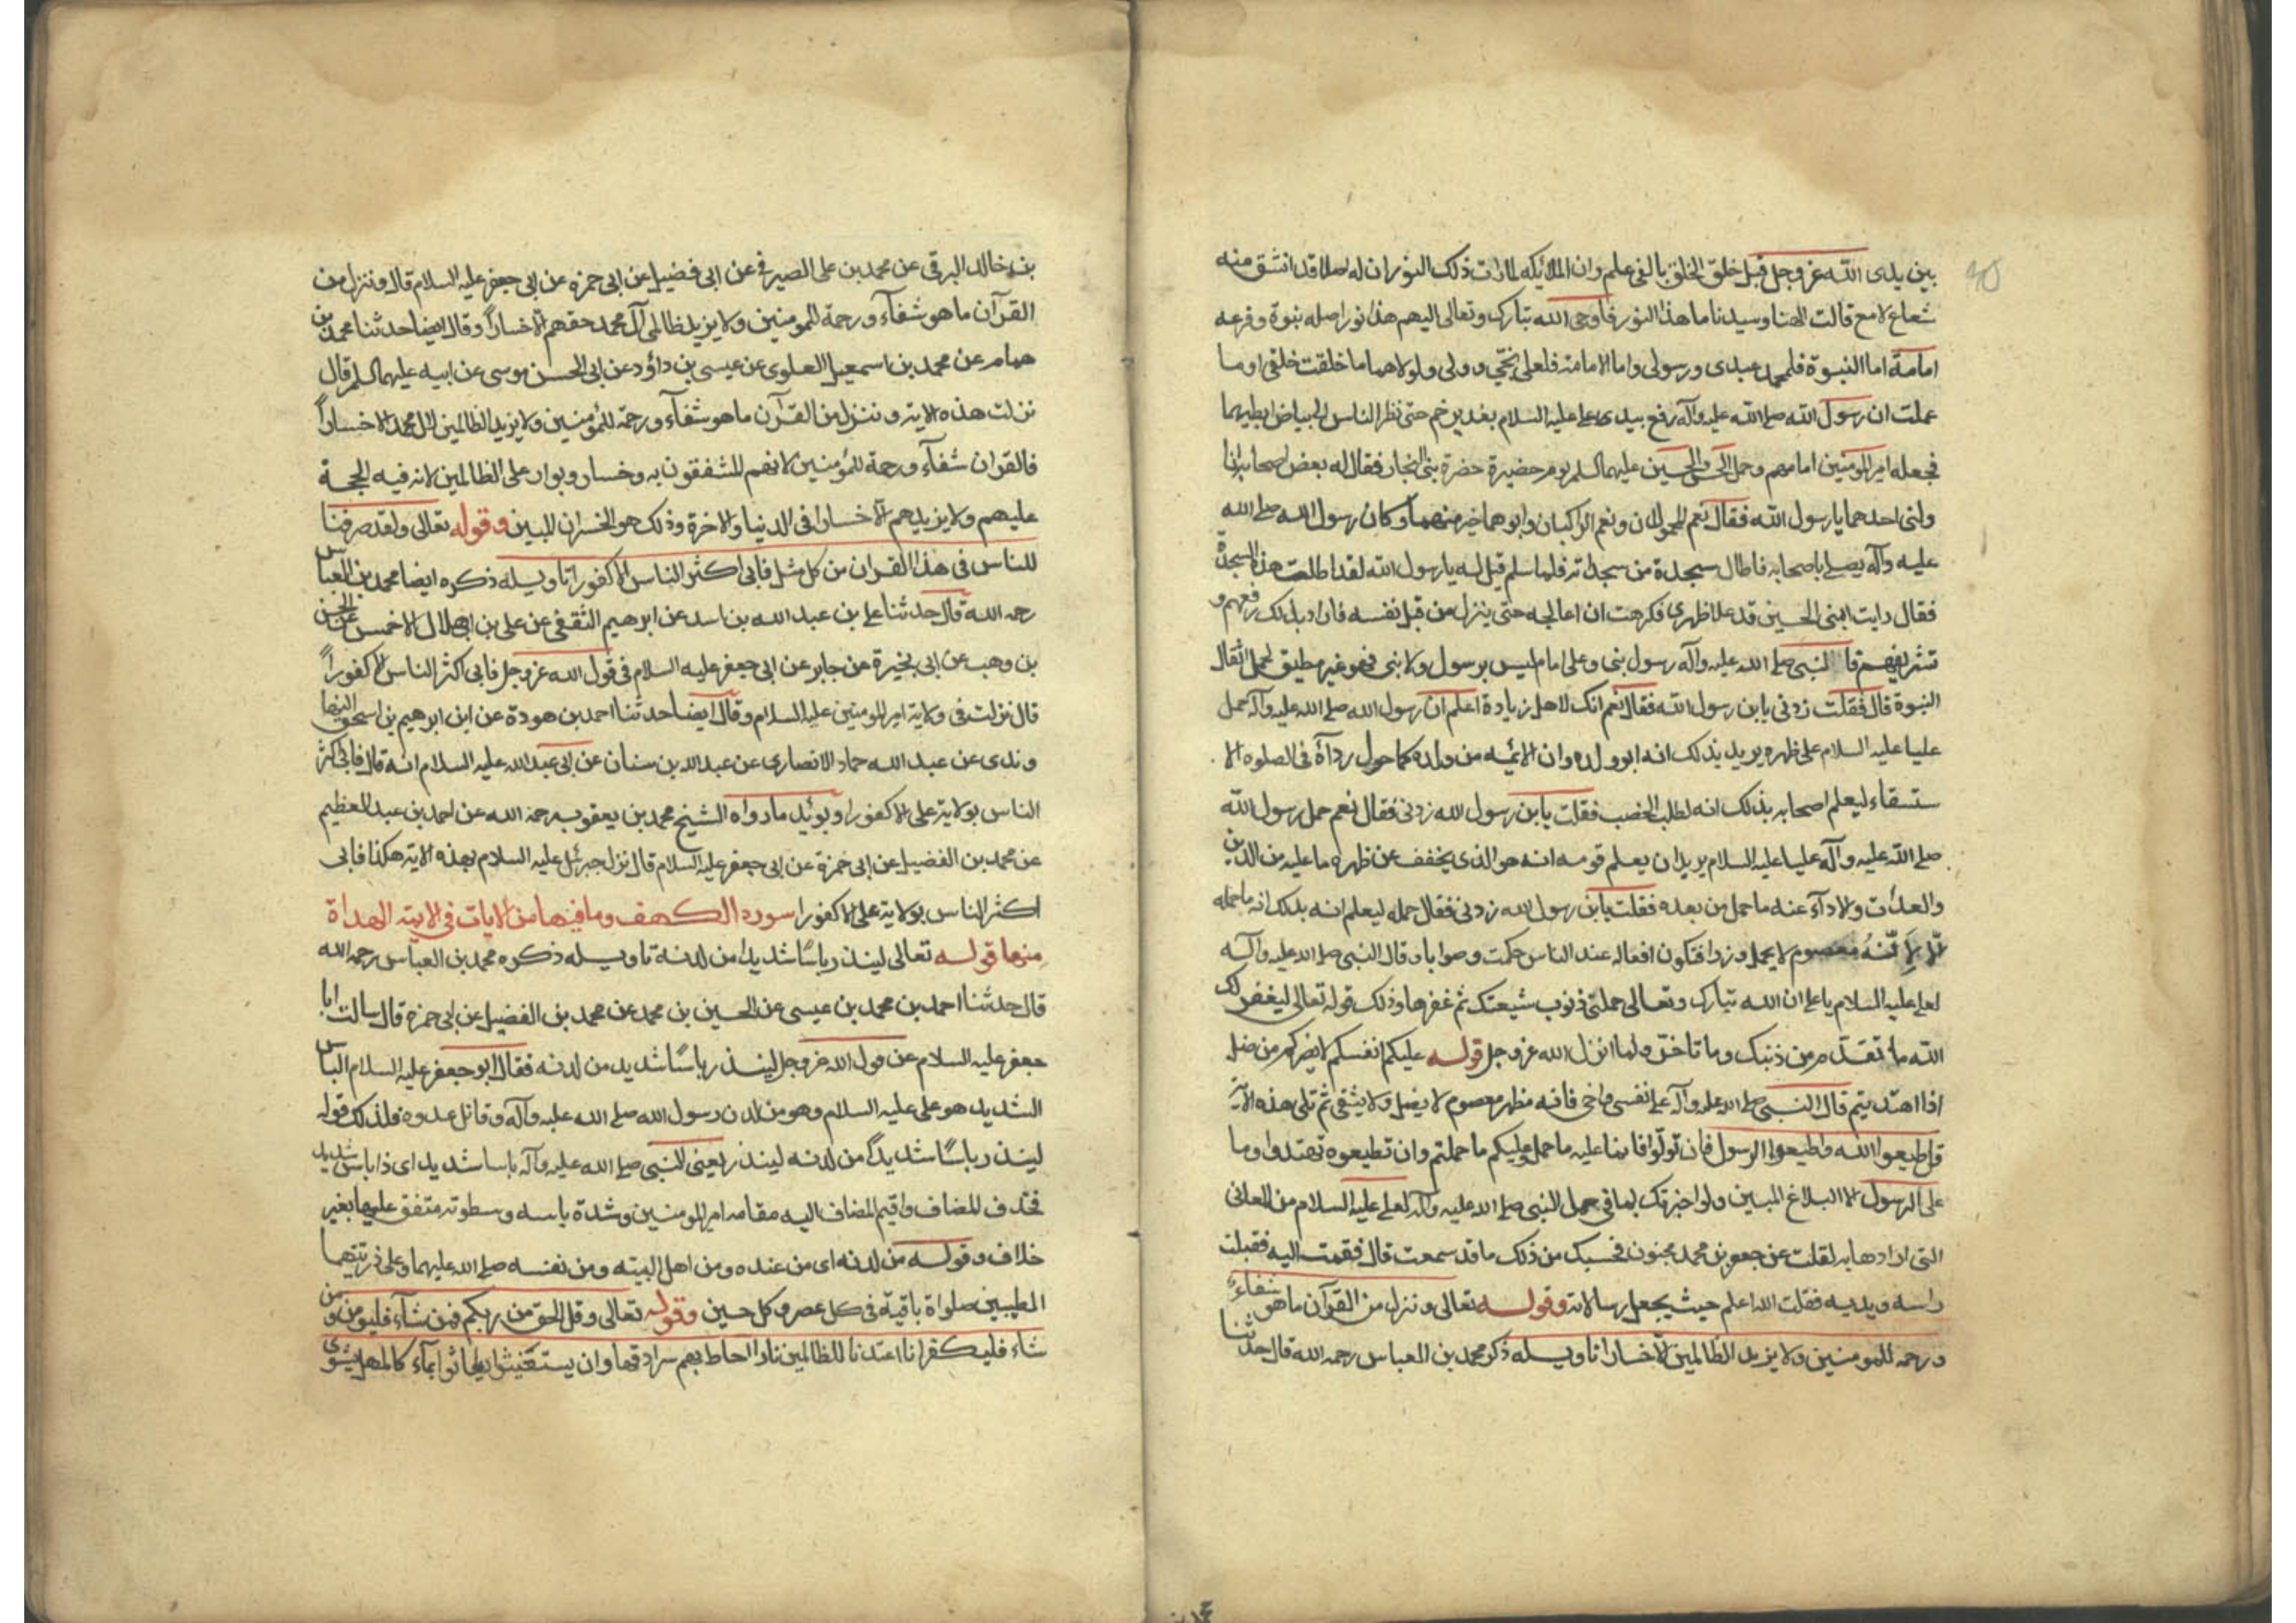 بين يدى الله عز وجل قبل خلق الخلق بالفى علم وان الملائكه لما رات ذلك النور ان له اصلا قد انشق منه
شعاع لامع قالت الهنا وسيدنا ما هذا النور فاوحى الله تبارك وتعالى اليهم هذا نور اصله نبوة وفرعه
امامة اما النبوة فلمحمد عبدى ورسولى واما الامامة فلعلى نجتى وولى ولولاهما ما خلقت خلقى اوما
علمت ان رسول الله صلى الله عليه وآله رفع بيدى على عليه السلام بغدير خم حتى نظر الناس الى بياض ابطيهما
فجعله امير المومنين امامهم وحمل الحسن والحسين عليهما السلم يوم حضيرة حضرة بنى النجار فقال له بعض اصحابه
ولنى احدهما يا رسول الله فقال نعم المحمولان ونعم الراكبان وابوهما خير منهما وكان رسول الله صلى الله
عليه وآله يصلى باصحابه فاطال سجدة من سجداته فلما سلم قيل له يا رسول الله لقد اطلت هذه السجدة
فقال رايت ابنى الحسين قد علا ظهرى فكرهت ان اعالجه حتى ينزل من قبل نفسه فاراد بذلك رفعهم و
تشريفهم قا النبى صلى الله عليه وآله رسول نبى وعلى امام ليس برسول ولا نبى فهو غير مطيق لحمل اثقال
النبوة قال فقلت زدنى يابن رسول الله فقال نعم انك لاهل زيادة اعلم ان رسول الله صلى الله عليه وآله حمل
عليا عليه السلام على ظهره يريد بذلك انه ابو ولده وان الائمه من ولده كما حول رداآه فى الصلوه الا
ستسقاء ليعلم اصحابه بذلك انه لطلب الخصب فقلت يابن رسول الله زدنى فقال نعم حمل رسول الله
صلى الله عليه وآله عليا عليه السلام يريد ان يعلم قومه انه هو الذى يخفف عن ظهره ما عليه من الدين
والعدات والاداء عنه ما حمل من بعده فقلت يابن رسول الله زدنى فقال حمله ليعلم انه بذلك انه ما حمله
الا لانه معصوم لا يحمل وزرا فتكون افعاله عند الناس حكمت وصوابا وقال النبى صلى الله عليه وآله
لعلى عليه السلام يا على ان الله تبارك وتعالى حملنى ذنوب شيعتك ثم غفرها وذلك قوله تعالى ليغفر لك
الله ما تقدم من ذنبك وما تاخر ولما انزل الله عز وجل قوله عليكم انفسكم لا يضركم من ضل
اذا اهتديتم قال النبى صلى الله عليه وآله على نفسى واخى فانه مطهر معصوم لا يضل ولا يشقى ثم تلى هذه الآية
قل اطيعوا الله واطيعوا الرسول فان تولوا فانما عليه ما حمل وعليكم ما حملتم وان تطيعوه تهتدوا وما
على الرسول الا البلاغ المبين ولو اخبرتك بما فى حمل النبى صلى الله عليه وآله لعلى عليه السلام من المعانى
التى ارادها به لقلت عن جعفر بن محمد مجنون فحسبك من ذلك ما قد سمعت قال فقمت اليه فقبلت
راسه ويديه فقلت الله اعلم حيث يجعل رسالاته وقوله تعالى وننزل من القرآن ما هو شفاء
ورحمه للمومنين ولا يزيد الظالمين الا خسارا تاويله ذكر محمد بن العباس رحمه الله قال حدثنا
بن خالد البرقى عن محمد بن على الصيرفى عن ابى فضيل عن ابى حمزه عن ابى جعفر عليه السلام قال وننزل من
القرآن ما هو شفآء ورحمة للمومنين ولا يزيد ظالمى آل محمد حقهم الا خسارا وقال ايضا حدثنا محمد بن
همام عن محمد بن اسمعيل العلوى عن عيسى بن داؤد عن ابى الحسن موسى عن ابيه عليهما السلم قال
نزلت هذه الاية وننزل من القرآن ما هو شفآء ورحمة للمؤمنين ولا يزيد الظالمين لال محمد الا خسارا
فالقران شفآء ورحمة للمؤمنين لانهم للشفقون به وخسار وبوار على الظالمين لانه فيه الحجة
عليهم ولا يزيدهم الا خسارا فى الدنيا والاخرة وذلك هو الخسران المبين وقوله تعالى ولقد صرفنا
للناس فى هذا القران من كل مثل فابى اكثر الناس الا كفورا تاويله ذكره ايضا محمد بن العباس
رحمه الله قال حدثنا على بن عبد الله بن اسد عن ابرهيم الثقفى عن على بن ابى هلال الاخمس عن الحسن
بن وهب عن ابى بحيرة عن جابر عن ابى جعفر عليه السلام فى قول الله عز وجل فابى اكثر الناس الا كفورا
قال نزلت فى ولاية امير المومنين عليه السلام وقال ايضا حدثنا احمد بن هودة عن ابن ابرهيم بن اسحق النها
وندى عن عبد الله حماد الانصارى عن عبد الله بن سنان عن ابى عبد الله عليه السلام انه قال فابى اكثر
الناس بولاية على الا كفورا ويوئيد ما رواه الشيخ محمد بن يعقوب رحمه الله عن احمد بن عبد العظيم
عن محمد بن الفضيل عن ابى حمزة عن ابى جعفر عليه السلام قال نزل جبرئل عليه السلام بهذه الاية هكذا فابى
اكثر الناس بولاية على الا كفورا سورة الكهف وما فيها من الايات فى الايمة الهداة
منها قوله تعالى لينذر باسًا شديدا من لدنه تاويله ذكره محمد بن العباس رحمه الله
قال حدثنا احمد بن محمد بن عيسى عن الحسين بن محمد عن محمد بن الفضيل عن ابى حمزة قال سالت ابا
جعفر عليه السلام عن قول الله عز وجل لينذر باسًا شديد من لدنه فقال ابو جعفر عليه السلام الباس
الشديد هو على عليه السلام وهو من لدن رسول الله صلى الله عليه وآله وقاتل عدوه فلذلك قوله
لينذر باسًا شديدًا من لدنه لينذر يعنى النبى صلى الله عليه وآله باسا شديد اى ذا باس شديد
فحذف المضاف واقيم المضاف اليه مقامه امير المومنين وشدة باسه وسطوته متفق عليها بغير
خلاف وقوله من لدنه اى من عنده ومن اهل البيته ومن نفسه صلى الله عليهما وعلى ذريتهما
الطيبين صلواة باقية فى كل عصر وكل حين وقوله تعالى وقل الحق من ربكم فمن شآء فليومن ومن
شاء فليكفر انا اعتدنا للظالمين نارا احاط بهم سرادقها وان يستغيثوا يغاثوا بمآء كالمهل يشوى